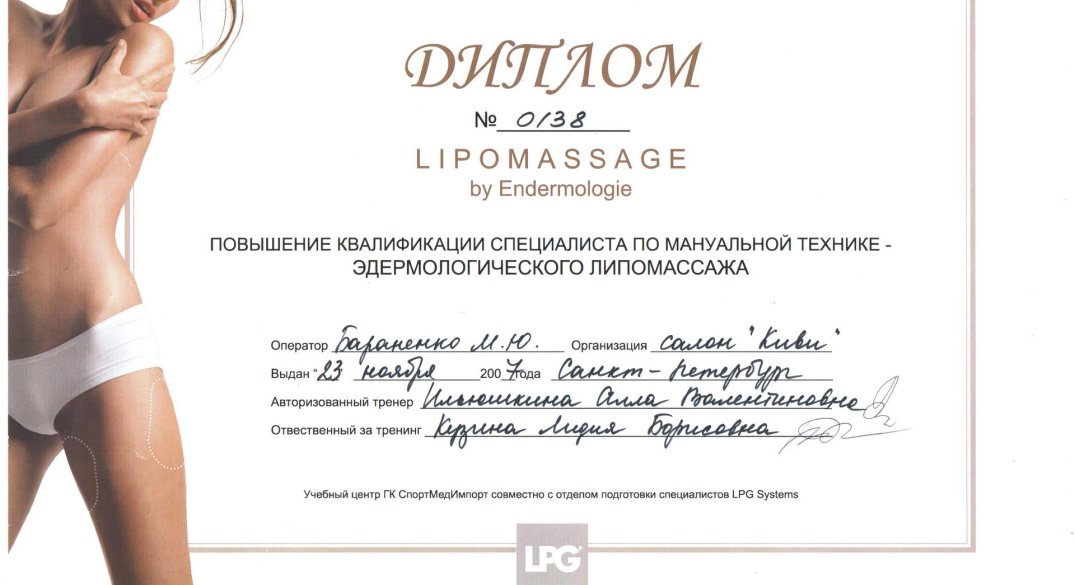 ДИПЛОМ
№ 0138
LIPOMASSAGE
by Endermologie
ПОВЫШЕНИЕ КВАЛИФИКАЦИИ СПЕЦИАЛИСТА ПО МАНУАЛЬНОЙ ТЕХНИКЕ -
ЭДЕРМОЛОГИЧЕСКОГО ЛИПОМАССАЖА
Оператор Бараненко М.Ю. Организация салон "Киви"
Выдан "23 ноября 2007года Санкт-петербург
Авторизованный тренер Ильюшкина Алла Валентиновна
Отвественный за тренинг Керзина Лидия Борисовна
Учебный центр ГК СпортМедИмпорт совместно с отделом подготовки специалистов LPG Systems
LPG